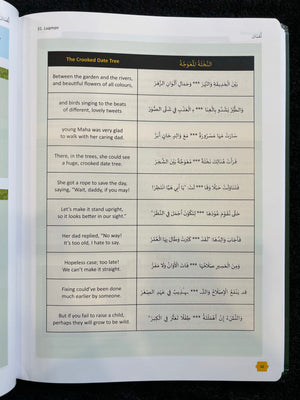 31. Luqman
لُقْمَان
The Crooked Date Tree
النَّخْلَةُ الْمُعْوَجَّةُ
Between the garden and the rivers,
and beautiful flowers of all colours,
بَيْنَ الْحَدِيقَةِ وَالنَّهَرْ *** وَجَمَالِ أَلْوَانِ الزَّهَرْ
and birds singing to the beats
of different, lovely tweets
وَالطَّيْرُ يَشْدُو بِالْغِنَا *** ءِ الْعَذْبِ فِي شَتَّى الصُّوَرْ
young Maha was very glad
to walk with her caring dad.
سَارَتْ مَهَا مَسْرُورَةً *** مَعَ وَالِدٍ حَانٍ أَبَرّْ
There, in the trees, she could see
a huge, crooked date tree.
فَرَأَتْ هُنَالِكَ نَخْلَةً *** مُعْوَجَّةً بَيْنَ الشَّجَرْ
She got a rope to save the day,
saying, "Wait, daddy, if you may!
فَتَنَاوَلَتْ حَبْلًا وَقَا *** لَتْ "يَا أَبِي هَيَّا انْتَظِرْ!
Let's make it stand upright,
so it looks better in our sight."
حَتَّى نُقَوِّمَ عُودَهَا *** لِتَكُونَ أَجْمَلَ فِي النَّظَرْ"
Her dad replied, "No way!
It's too old, I hate to say.
فَأَجَابَ وَالِدُهَا: "لَقَدْ *** كَبُرَتْ وَطَالَ بِهَا الْعُمُرْ
Hopeless case; too late!
We can't make it straight.
وَمِنَ الْعَسِيرِ صَلَاحُهَا *** فَاتَ الْأَوَانُ وَلَا مَفَرّْ
Fixing could've been done
much earlier by someone.
قَدْ يَنْفَعُ الْإِصْلَاحُ وَالتَّـ *** ـهْذِيبُ فِي عَهْدِ الصِّغَرْ
But if you fail to raise a child,
perhaps they will grow to be wild.
وَالنَّشْءُ إِنْ أَهْمَلْتَهُ *** طِفْلًا تَعَثَّرَ فِي الْكِبَرْ"